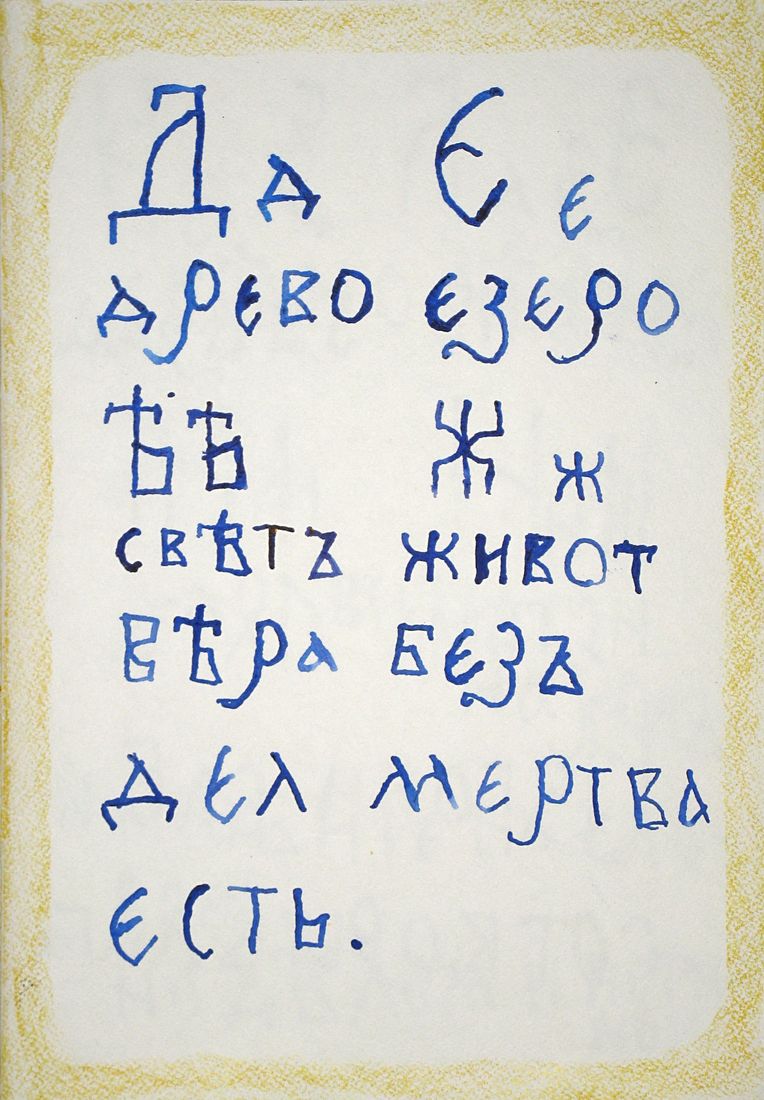 Д д Є є
древо езеро
Ѣ ѣ Ж ж
свѣтъ живот
вѣра безъ
дел мертва
есть.